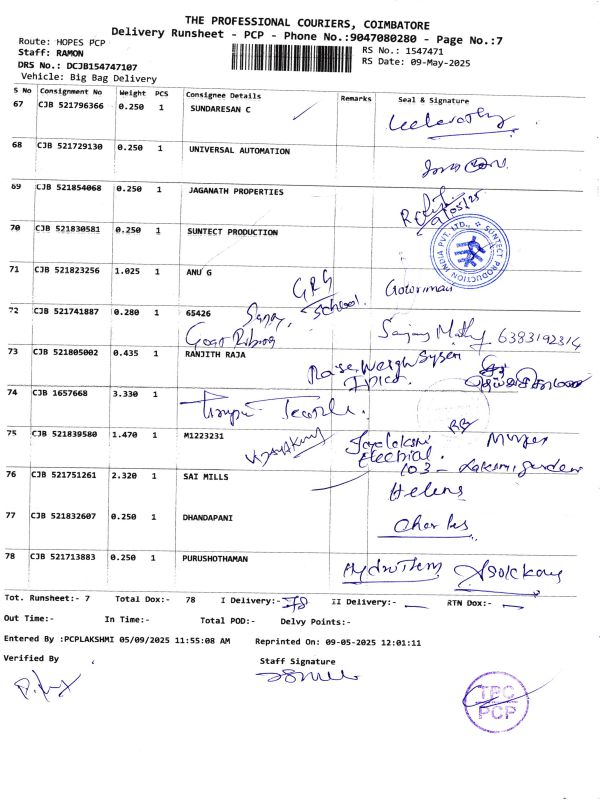 THE PROFESSIONAL COURIERS, COIMBATORE
Delivery Runsheet - PCP - Phone No.:9047080280 - Page No.:7
Route: HOPES PCP
RS No.: 1547471
Staff: RAMON
RS Date: 09-May-2025
DRS No.: DCJB154747107
Vehicle: Big Bag Delivery
S No Consignment No Weight PCS Consignee Details Remarks Seal & Signature
67 CJB 521796366 0.250 1 SUNDARESAN C
68 CJB 521729130 0.250 1 UNIVERSAL AUTOMATION
69 CJB 521854068 0.250 1 JAGANATH PROPERTIES
9/05/25
70 CJB 521830581 0.250 1 SUNTECT PRODUCTION
SUNTECT PRODUCTION INDIA PVT. LTD.,
71 CJB 521823256 1.025 1 ANU G
GRG School.
72 CJB 521741887 0.280 1 65426
Sanjay 6383192314
73 CJB 521805002 0.435 1 RANJITH RAJA
74 CJB 1657668 3.330 1
75 CJB 521839580 1.470 1 M1223231
Vijayakumar
Electrical.
103 -
76 CJB 521751261 2.320 1 SAI MILLS
Helens
77 CJB 521832607 0.250 1 DHANDAPANI
Charles
78 CJB 521713883 0.250 1 PURUSHOTHAMAN
Tot. Runsheet:- 7 Total Dox:- 78 I Delivery:- 78 II Delivery:- — RTN Dox:- —
Out Time:- In Time:- Total POD:- Delvy Points:-
Entered By :PCPLAKSHMI 05/09/2025 11:55:08 AM Reprinted On: 09-05-2025 12:01:11
Verified By Staff Signature
TPC
PCP